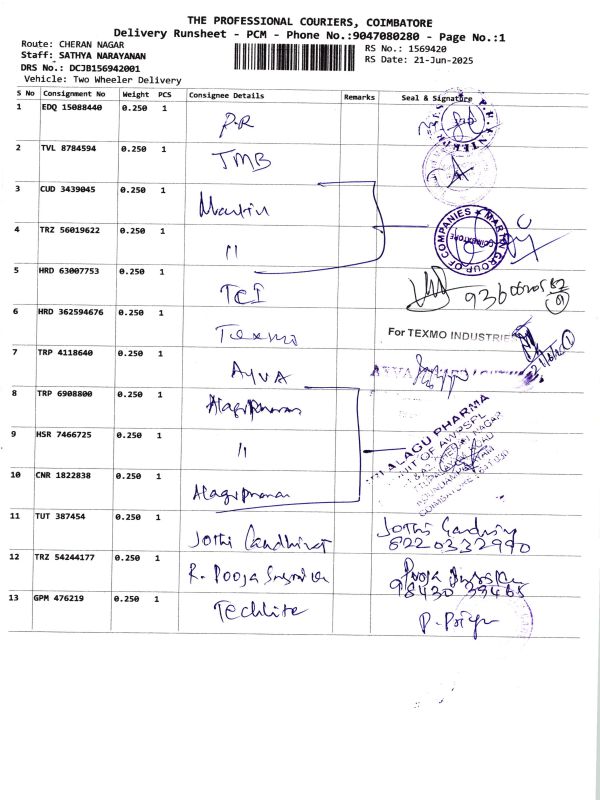 THE PROFESSIONAL COURIERS, COIMBATORE
Delivery Runsheet - PCM - Phone No.:9047080280 - Page No.:1
Route: CHERAN NAGAR
RS No.: 1569420
Staff: SATHYA NARAYANAN
RS Date: 21-Jun-2025
DRS No.: DCJB156942001
Vehicle: Two Wheeler Delivery
S No Consignment No Weight PCS Consignee Details Remarks Seal & Signature
1 EDQ 15088440 0.250 1 P.R
2 TVL 8784594 0.250 1 TMB
3 CUD 3439045 0.250 1 Martin
4 TRZ 56019622 0.250 1 "
MARTIN GROUP OF COMPANIES
COIMBATORE
5 HRD 63007753 0.250 1 TCI
6 HRD 362594676 0.250 1 Texmo For TEXMO INDUSTRIES
7 TRP 4118640 0.250 1 AYVA
8 TRP 6908800 0.250 1 Alagupharma
ALAGU PHARMA
UNIT OF AWPSPL
9 HSR 7466725 0.250 1 "
10 CNR 1822838 0.250 1 Alagupharma
11 TUT 387454 0.250 1 Jothi Gandhirat Jothi
6220332990
12 TRZ 54244177 0.250 1 R. Pooja Pooja
98430 39465
13 GPM 476219 0.250 1 Techlite P. Priya